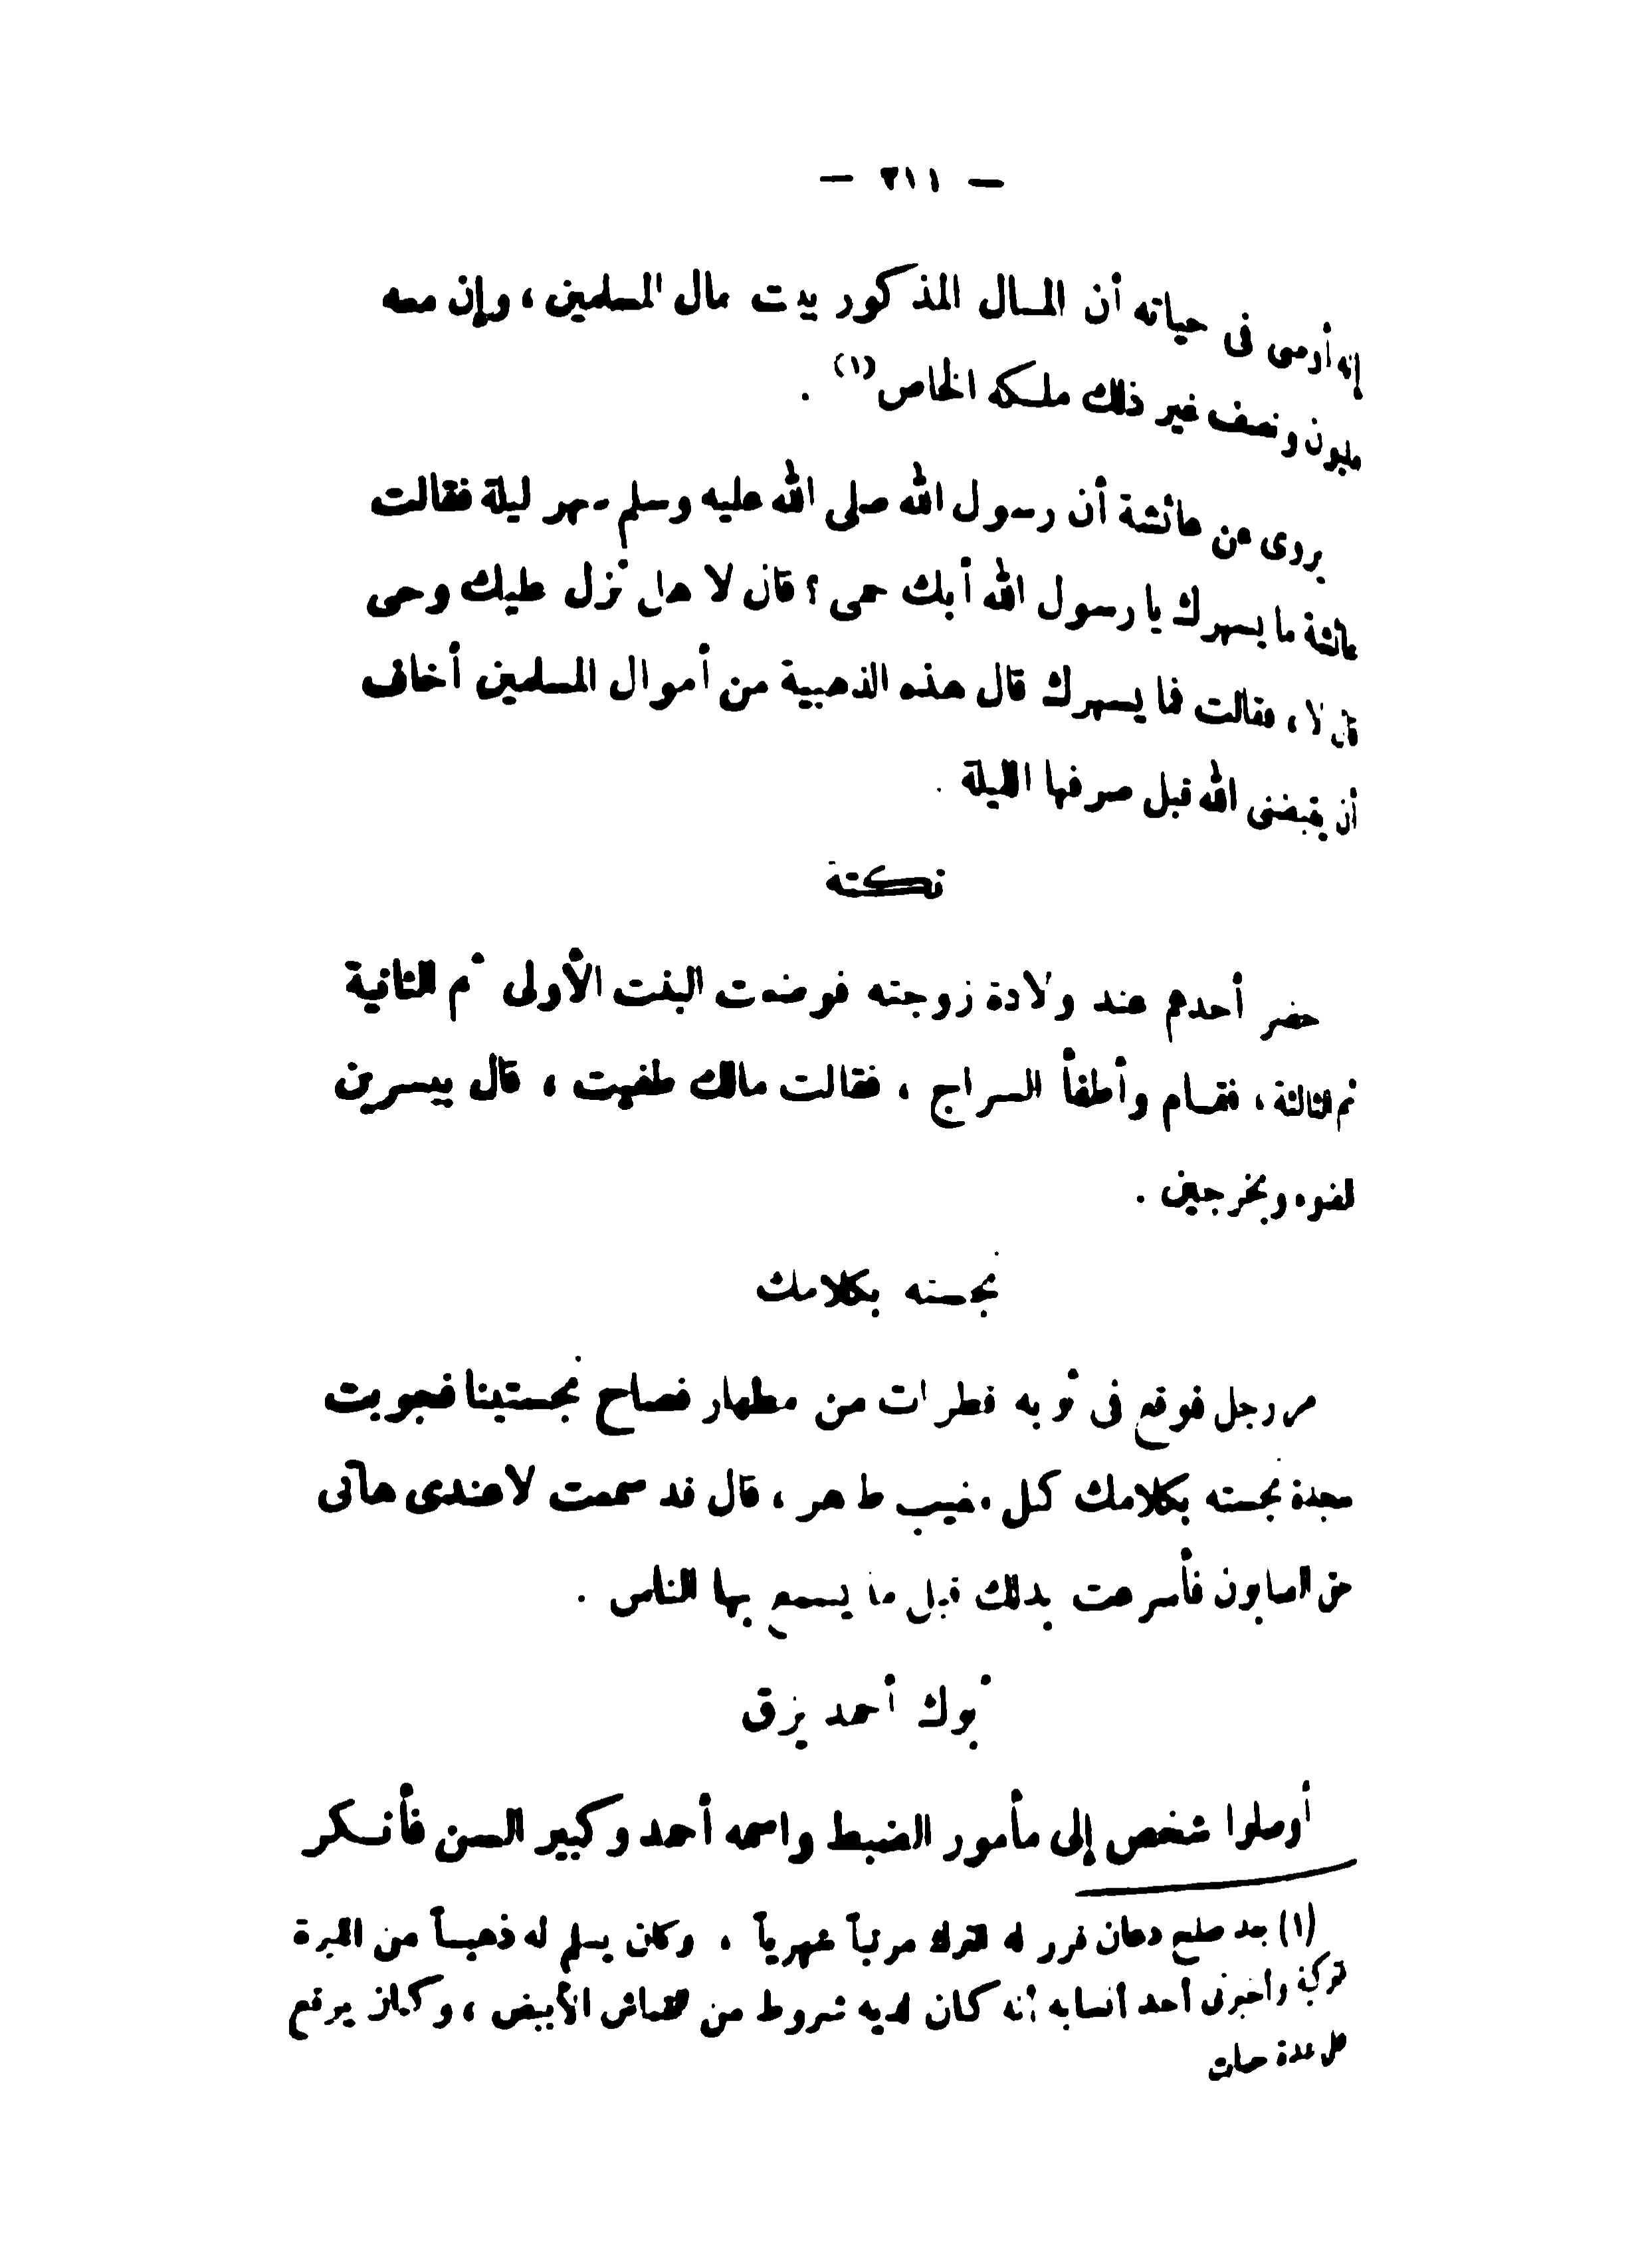 — ٢١١ —
إنه أوصى فى حياته أن المال المذكور بيت مال المسلمين ، وإن معه
مليون ونصف غير ذلك ملكه الخاص (١) .
يروى عن عائشة أن رسول الله صلى الله عليه وسلم سهر ليلة فقالت
عائشة ما يسهرك يا رسول الله أبك حمى ؟ قال لا هل نزل عليك وحى
قال لا ، فقالت فما يسهرك قال هذه الذهبية من أموال المسلمين أخاف
أن يقبضنى الله قبل صرفها الليلة .
نكتة
حضر أحدهم عند ولادة زوجته فوضعت البنت الأولى ثم الثانية
ثم الثالثة ، فقام وأطفأ السراج ، فقالت مالك طفيت ، قال يبسرين
لضوه ويخرجين .
نجسته بكلامك
مر رجل فوقع فى ثوبه قطرات من مطهار فصاح نجستينا فجوبت
سجدة نجسته بكلامك كل مغيب طاهر ، قال قد سمعت لا عندى هاتى
من الصابون فأسرعت بذلك قبل ما يسمع بها الناس .
نبوك أحمد يزق
أوصلوا شخص إلى مأمور الضبط واسمه أحمد وكبير السن فأنكر
(١) بعد صلح دعان قرر له الترك مرتباً شهرياً ، وكان يسلم له ذهباً من الليرة
تركية وأخبرنى أحد أنسابه أنه كان لديه شروط من القماش الأبيض ، وكان يرقع
على عدة